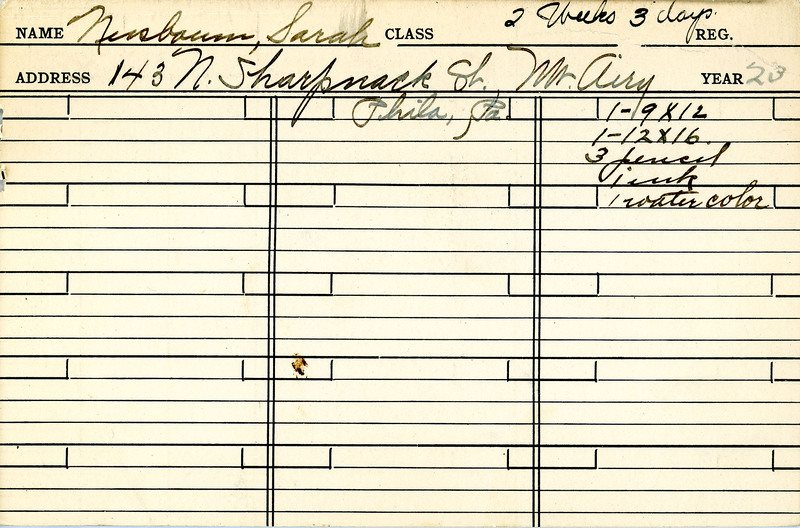 NAME Nusbaum, Sarah CLASS 2 Weeks 3 days. REG.
ADDRESS 143 N. Sharpnack St., Mt. Airy YEAR 23
Phila, Pa.
1-9X12
1-12X16.
3 pencil
1 ink
1 water color